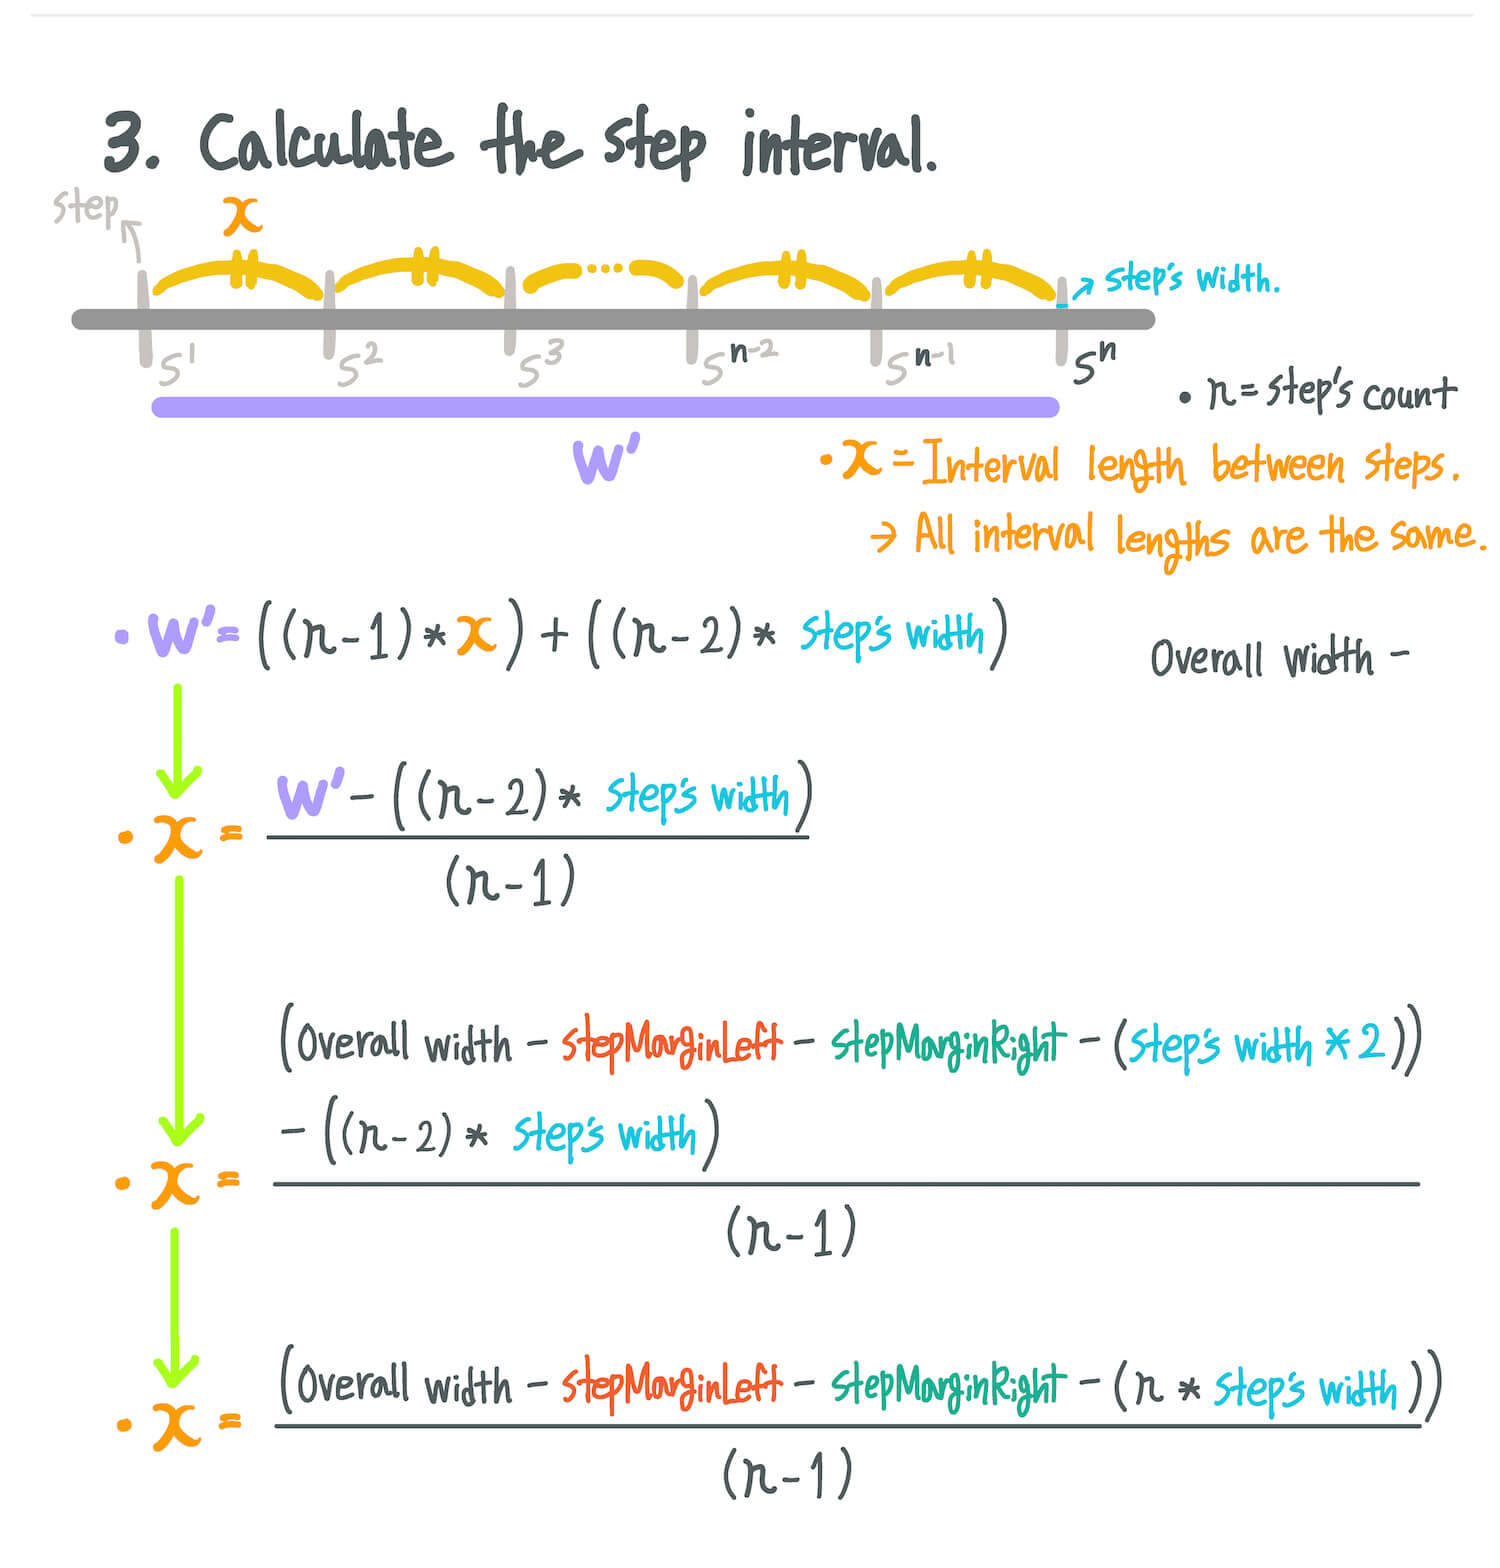 3. Calculate the step interval.
step
x
step's width.
S¹ S² S³ Sⁿ⁻² Sⁿ⁻¹ Sⁿ
• n = step's count
W'
• x = Interval length between steps.
→ All interval lengths are the same.
• W' = ((n-1) * x) + ((n-2) * step's width)
Overall width -
W' - ((n-2) * step's width)
• x =
(n-1)
(Overall width - stepMarginLeft - stepMarginRight - (step's width * 2))
- ((n-2) * step's width)
• x =
(n-1)
(Overall width - stepMarginLeft - stepMarginRight - (n * step's width))
• x =
(n-1)